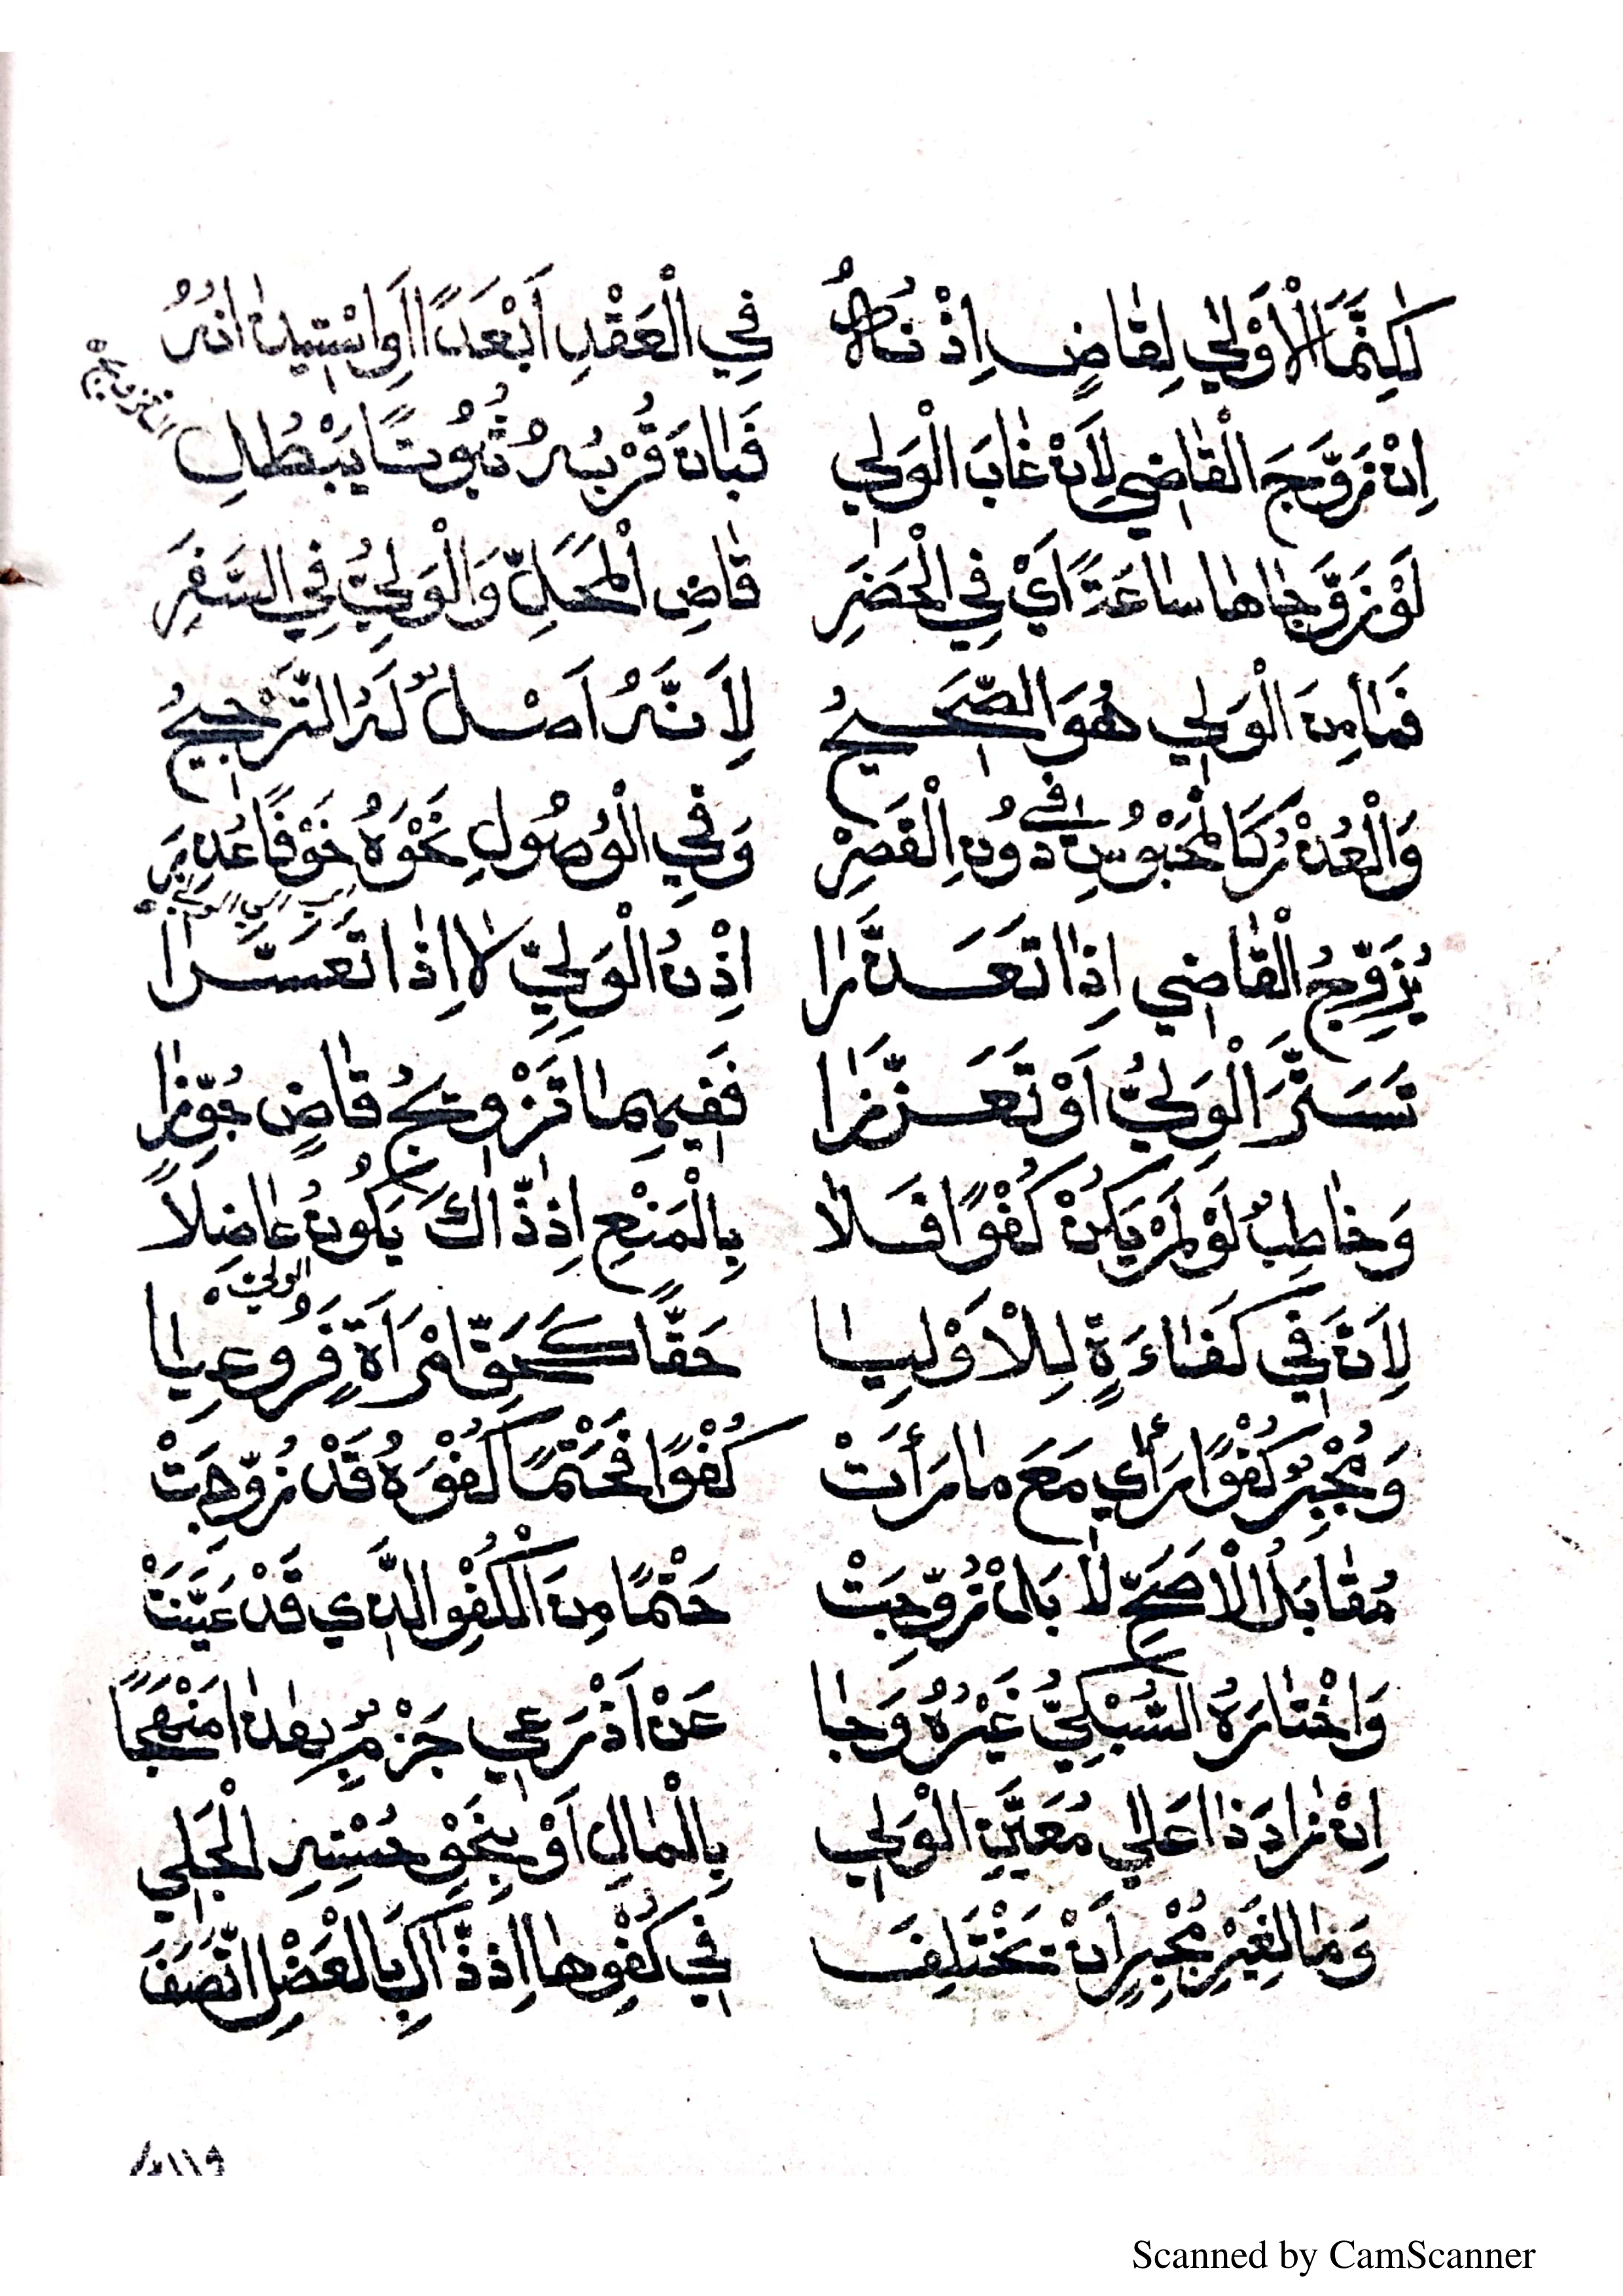 لَكِنَّمَا الْأَوْلَى لِقَاضٍ إِذْنُهُ فِي الْعَقْدِ أَبْعَدًا أَوِ اسْتِيذَانُهُ
التزويج
إِنْ زَوَّجَ الْقَاضِي لِأَنْ غَابَ الْوَلِي فَبَانَ قُرْبُهُ ثُبُوتًا يَبْطُلِ
لَوْ زَوَّجَاهَا سَاعَةً أَيْ فِي الْحَضَرِ قَاضِ الْمَحَلِّ وَالْوَلِيُّ فِي السَّفَرِ
فَمَا مِنَ الْوَلِي هُوَ الصَّحِيحُ لِأَنَّهُ أَصْلٌ لَهُ التَّرْجِيحُ
وَالْعُذْرُ كَالْمَحْبُوسِ فِي دُونِ الْقَصِرْ وَفِي الْوُصُولِ نَحْوَهُ خَوْفًا عُذِرَ
إلى الولي
يُزَوِّجُ الْقَاضِي إِذَا تَعَذَّرَا إِذْنُ الْوَلِيِّ لَا إِذَا تَعَسَّرَا
تَسَتَّرَ الْوَلِيُّ أَوْ تَعَزَّزَا فَفِيهِمَا تَزْوِيجُ قَاضٍ جُوِّزَا
وَخَاطِبٌ لَوْ لَمْ يَكُنْ كُفْوًا فَلَا بِالْمَنْعِ إِذْ ذَّاكَ يَكُونُ عَاضِلًا
الولي
لِأَنَّ فِي كَفَاءَةٍ لِلْأَوْلِيَا حَقًّا كَحَقِّ امْرَأَةٍ فَرُوعِيَا
وَمُجْبِرٌ كُفْوًا رَأَى مَعَ مَا رَأَتْ كُفْوًا فَحَتْمًا كُفْوَهُ قَدْ زُوِّجَتْ
مُقَابَلُ الْأَصَحِّ لَا بَلْ زُوِّجَتْ حَتْمًا مِنَ الْكُفْوِ الَّذِي قَدْ عَيَّنَتْ
وَاخْتَارَهُ السُّبْكِيُّ غَيْرُهُ وَجَا عَنْ أَذْرَعِي جَزْمٌ بِهَذَا مَنْهَجًا
إِنْ زَادَ ذَا عَلَى مُعَيَّنِ الْوَلِي بِالْمَالِ أَوْ بِنَحْوِ حُسْنِهِ الْجَلِي
وَمَا لِغَيْرِ مُجْبِرٍ أَنْ تَخْتَلِفَ فِي كُفْوِهَا إِذْ ذَّاكَ بِالْعَضْلِ اتَّصَفَ
Scanned by CamScanner